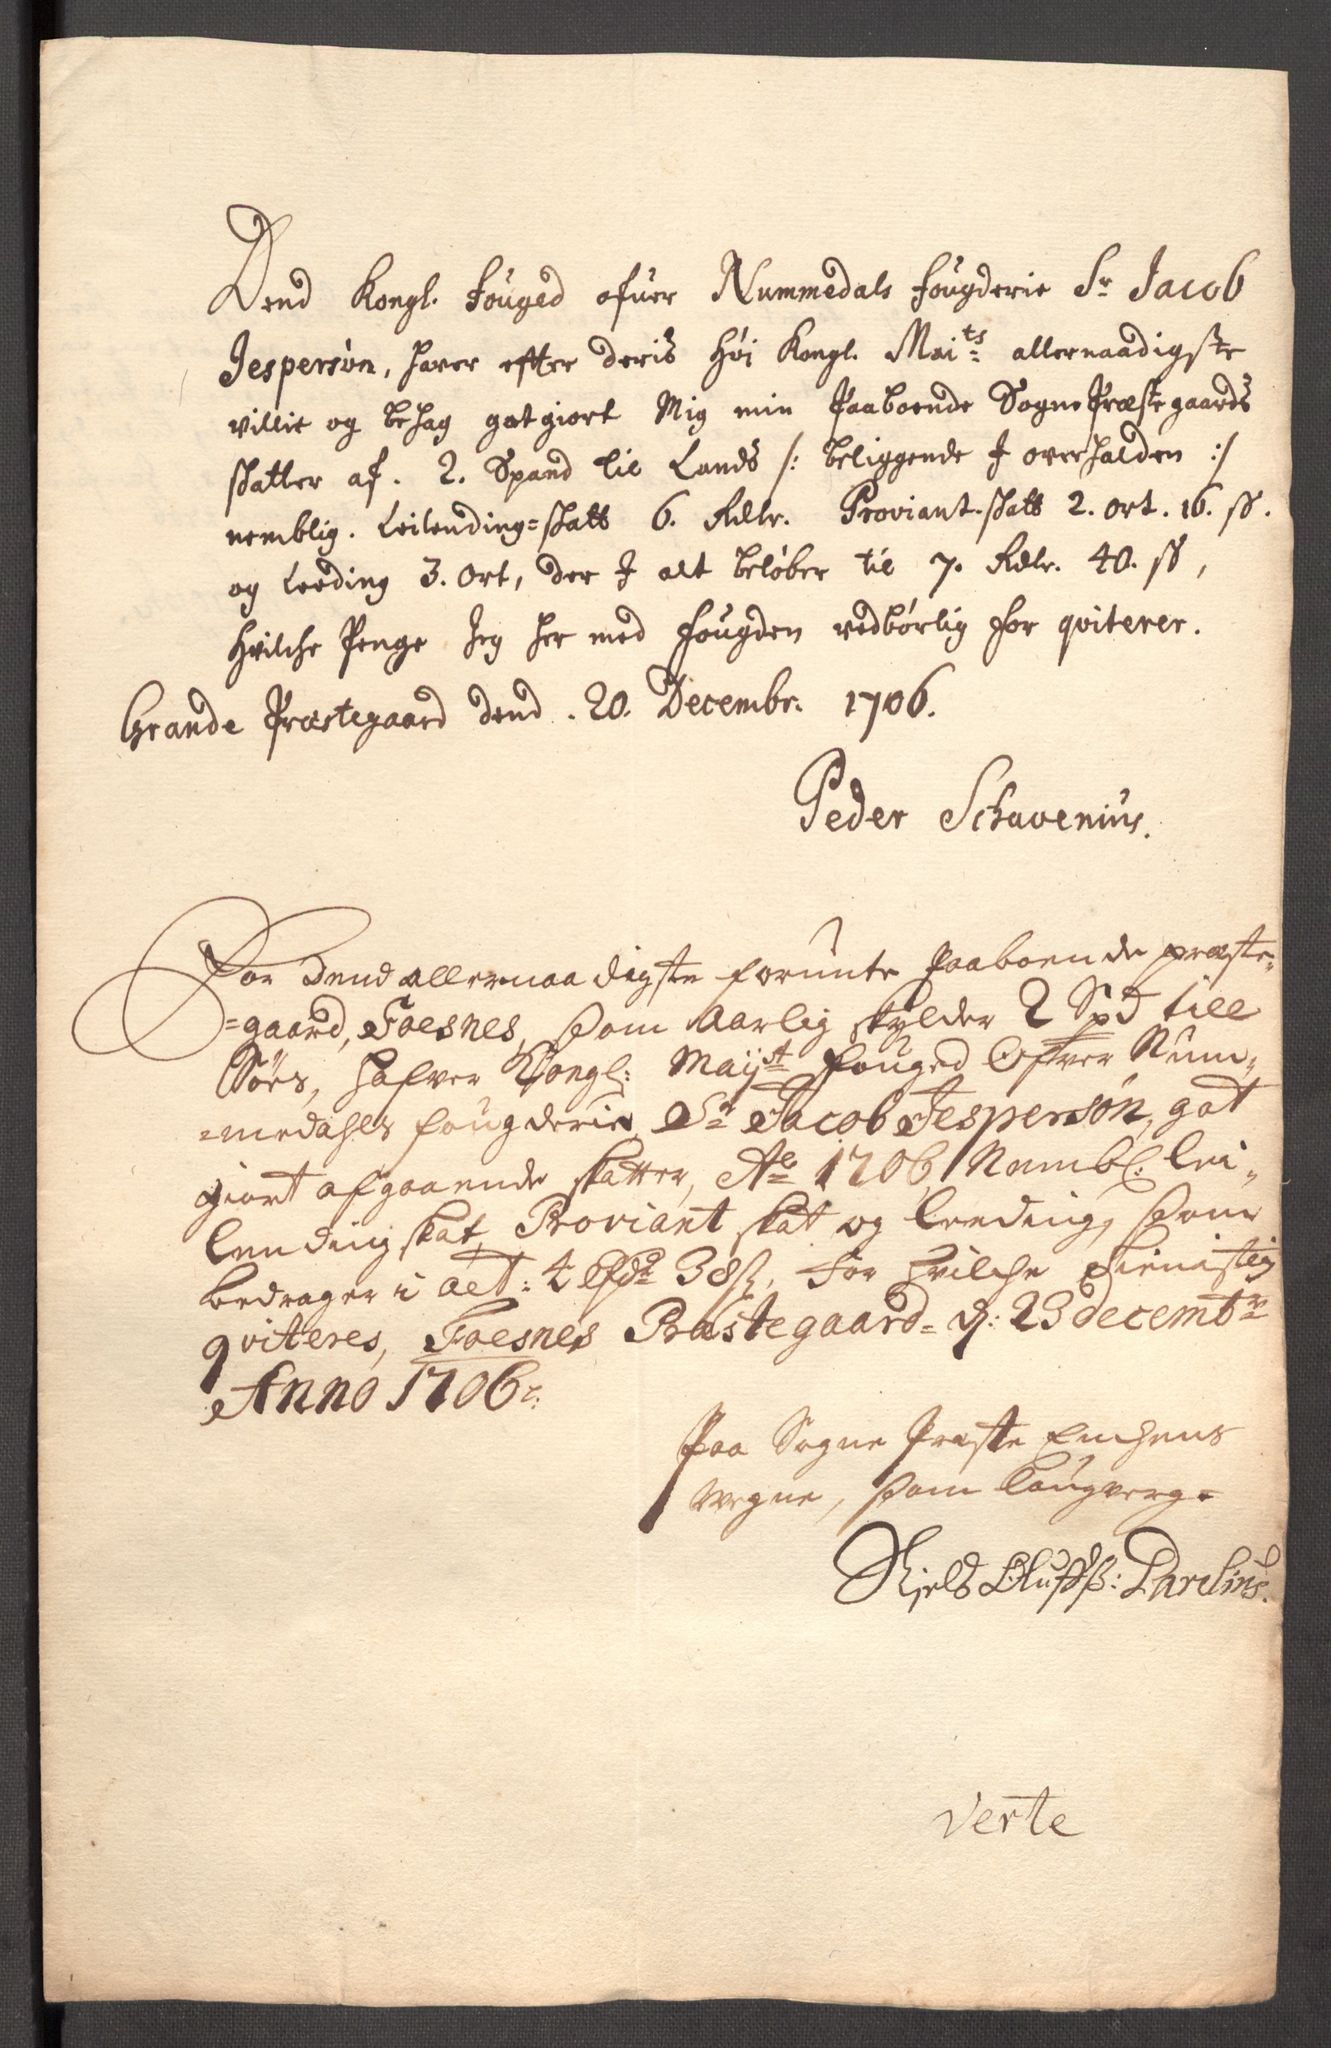 Dend Kongl. Fouged ofuer Nummedals Fougderie Sr Jacob
Jespersøn, haver efter deris Høi Kongl. Maits allernaadigste
villie og behag gotgiort Mig min Paaboende SognePræstegaards
skatter af. 2. Spand til Lands /: beliggende I overhalden :/
nemblig. Leilending=skatt 6. Rdlr. Proviant-skatt 2. ort. 16. ss.
og Leeding 3. ort, der I alt beløber til 7. Rdlr. 40. ss,
Hvilche Penge Jeg her med Fougden vedbørlig for qviterer.
Grande Præstegaard dend. 20. Decembr. 1706.
Peder Schavenius.
For Dend allernaadigste forunte paaboende præste=
=gaard, Foesnes, som Aarlig skylder 2 Spd till
Søes, hafver Kongl: Mayst fouged Ofver Num=
=medahls fougderie Sr Jacob Jespersøn, got
giort afgaaende skatter, Ao 1706, Nembl. lei=
lending skat, Proviant skat og leeding, som
bedrager i alt: 4 Rdr 38s, for hvilche tienistlig
qviteres, Foesnes Præstegaard d: 23 decembr
Anno 1706:
Paa Sogne Præste Enchens
Vegne, som Laugverge
Niels Oluffs: Parelius.
Verte